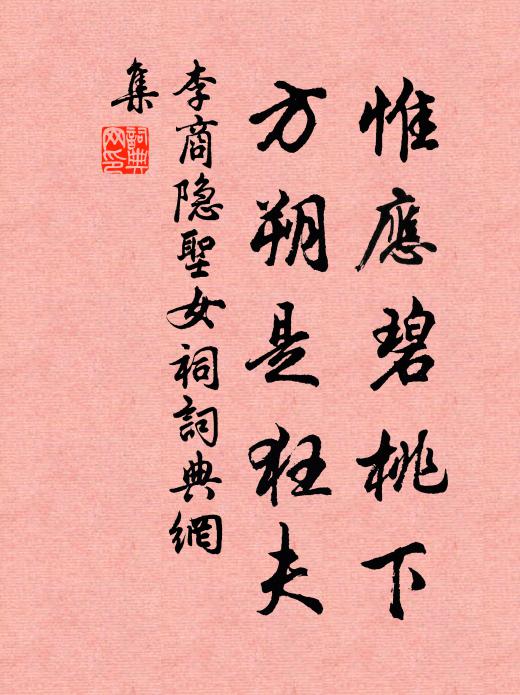 惟應碧桃下
方朔是狂夫
李商隐聖女祠詞典網
集
詞典
网印